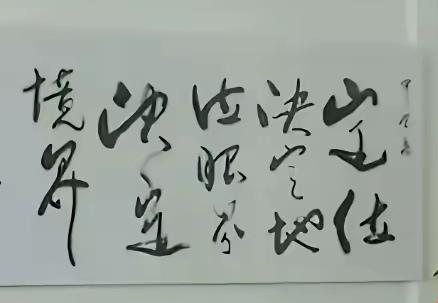 定位
决定地
位眼界
决定
境界